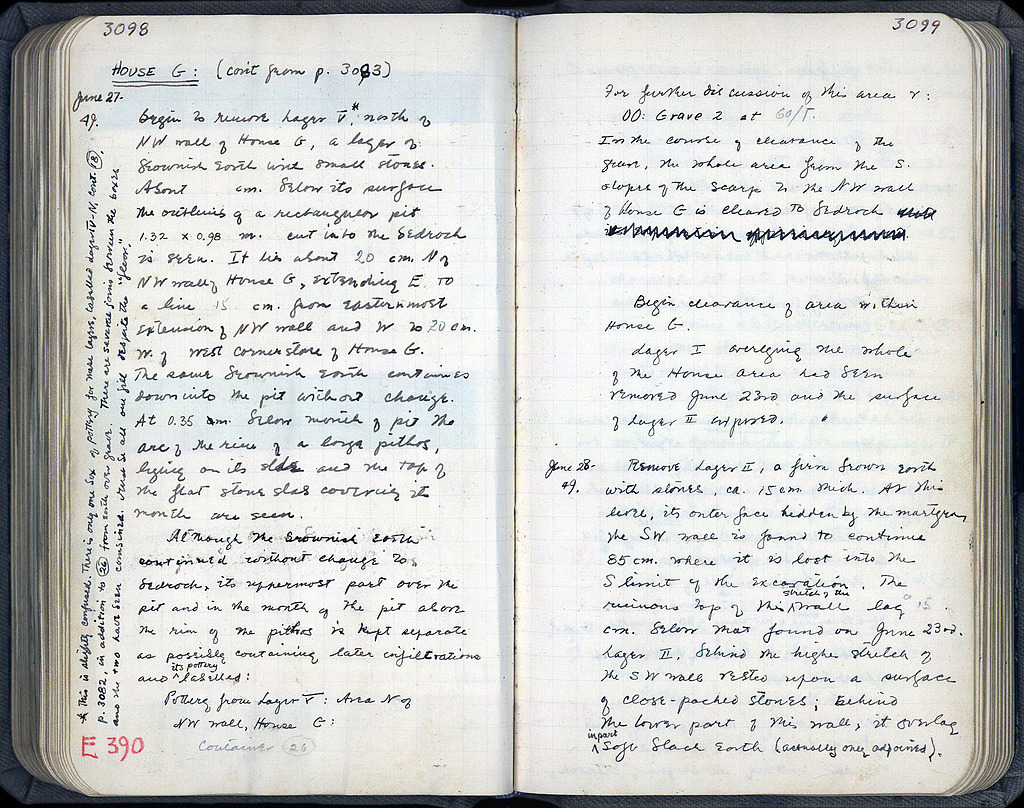 3098
HOUSE G: (con't from p. 3093)
June 27-
49.
Begin to remove Layer V,* north of
NW wall of House G, a layer of
brownish earth with small stones.
About cm. below its surface
the outlines of a rectangular pit
1.32 x 0.98 m. cut into the bedrock
is seen. It lies about 20 cm. N of
NW wall of House G, extending E. to
a line 15 cm. from easternmost
extension of NW wall and W to 20 cm.
W. of west cornerstone of House G.
The same brownish earth continues
down into the pit without change.
At 0.35 cm. below mouth of pit the
arc of the rim of a large pithos,
lying on its side and the top of
the flat stone slab covering its
mouth are seen.
Although the brownish earth
continued without change to
bedrock, its uppermost part over the
pit and in the mouth of the pit above
the rim of the pithos is kept separate
as possibly containing later infiltrations
and ^its pottery labelled:
Pottery from Layer V: Area N of
NW wall, House G:
Container (26)
* This is slightly confused. There is only one box of pottery for these layers, labelled Layer IV-V, Cont. (18),
p. 3082, in addition to (26) from earth over grave. There are several joins between the boxes
and the two have been combined. Must be all one fill despite the "floor."
E 390
3099
For further discussion of this area v:
OO: Grave 2 at 60/Γ.
In the course of clearance of the
grave, the whole area from the S.
slopes of the scarp to the NW wall
of House G is cleared to bedrock
Begin clearance of area within
House G
Layer I overlying the whole
of the House area had been
removed June 23rd and the surface
of Layer II exposed.
June 28-
49.
Remove Layer II, a firm brown earth
with stones, ca. 15 cm. thick. At this
level, its outer face hidden by the
the SW wall is found to continue
85 cm. where it is lost into the
S limit of the excavation. The
ruinous top of this ^stretch of the wall lay 15
cm. below that found on June 23rd.
Layer II. behind the higher stretch of
the SW wall rested upon a surface
of close-packed stones; behind
the lower part of this wall, it overlay
^in part soft black earth (actually only adjoined).